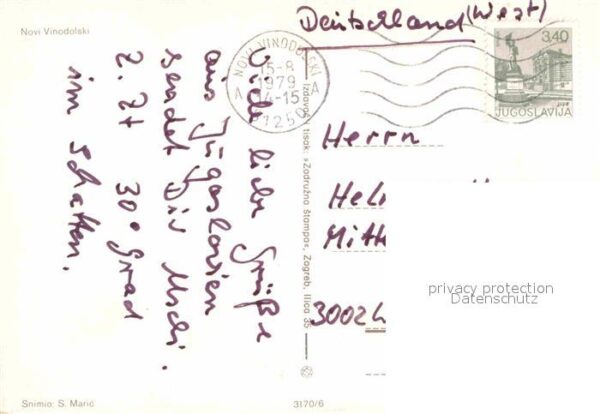 Novi Vinodolski
Deutschland (West)
NOVI VINODOLSKI
15-8
1979
14-15
A A
51250
3,40
JUGOSLAVIJA
Viele liebe Grüße
aus Jugoslavien
sendet Dir Uschi.
z. Zt 30° Grad
im Schatten.
Izdavač i tisak: »Zadružna štampa«, Zagreb, Ilica 35
Herrn
Mitt
3002
privacy protection
Datenschutz
Snimio: S. Marić
3170/6